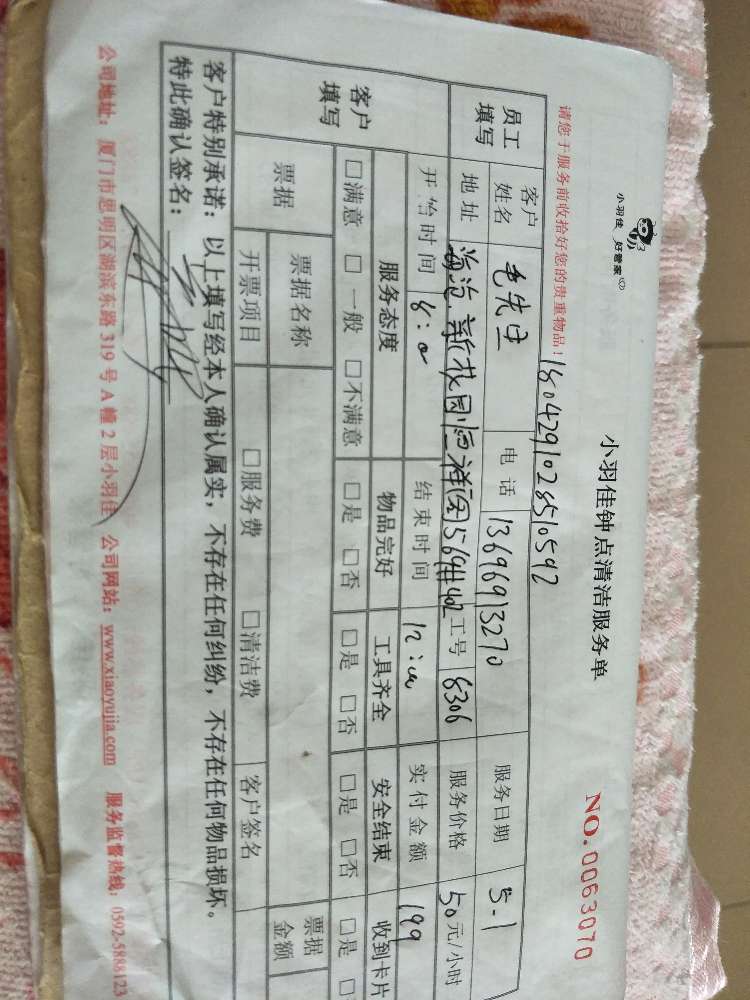 小羽佳 好管家
小羽佳钟点清洁服务单
NO. 0063070
请您于服务前收拾好您的贵重物品!
1804291028510592
员工填写 客户姓名 毛先生 电话 13696913270 服务日期 5-1
地址 海沧 新校园恒祥(医)569#402 工号 8306 服务价格 50元/小时
客户填写 开始时间 8:00 结束时间 12:00 实付金额 199
服务态度 物品完好 工具齐全 安全结束 收到卡片
□满意 □一般 □不满意 □是 □否 □是 □否 □是 □否 □是 □
票据 票据名称 票据金额
开票项目 □服务费 □清洁费 客户签名
客户特别承诺:以上填写经本人确认属实,不存在任何纠纷,不存在任何物品损坏。
特此确认签名:
公司地址:厦门市思明区湖滨东路319号A幢2层小羽佳 公司网站:www.xiaoyujia.com 服务监督热线:0592-5888123